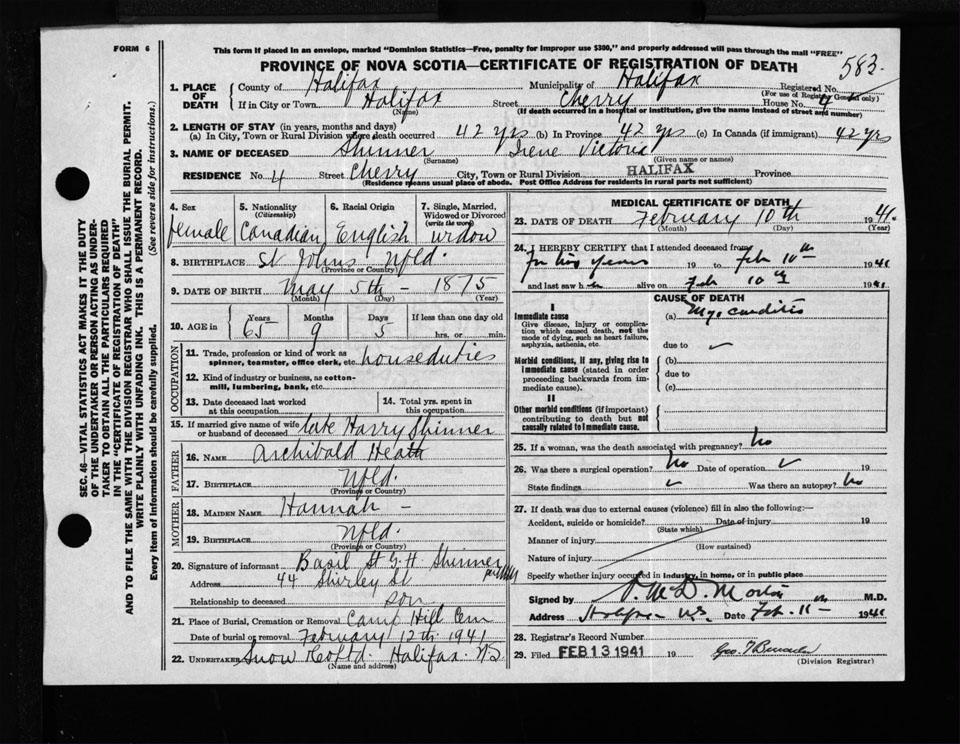 FORM 6
This form if placed in an envelope, marked "Dominion Statistics—Free, penalty for improper use $300," and properly addressed will pass through the mail "FREE"
PROVINCE OF NOVA SCOTIA—CERTIFICATE OF REGISTRATION OF DEATH
583
SEC. 46—VITAL STATISTICS ACT MAKES IT THE DUTY
OF THE UNDERTAKER OR PERSON ACTING AS UNDER-
TAKER TO OBTAIN ALL THE PARTICULARS REQUIRED
IN THE "CERTIFICATE OF REGISTRATION OF DEATH"
AND TO FILE THE SAME WITH THE DIVISION REGISTRAR WHO SHALL ISSUE THE BURIAL PERMIT.
WRITE PLAINLY WITH UNFADING INK. THIS IS A PERMANENT RECORD.
Every item of information should be carefully supplied. (See reverse side for instructions.)
1. PLACE OF DEATH
County of Halifax Municipality of Halifax Registered No.
(For use of Registrar General only)
If in City or Town Halifax Street Cherry House No. 4
(Name) (If death occurred in a hospital or institution, give the name instead of street and number)
2. LENGTH OF STAY (in years, months and days)
(a) In City, Town or Rural Division where death occurred 42 yrs (b) In Province 42 yrs (c) In Canada (if immigrant) 42 yrs
3. NAME OF DECEASED Skinner Irene Victoria
(Surname) (Given name or names)
RESIDENCE No. 4 Street Cherry City, Town or Rural Division HALIFAX Province
(Residence means usual place of abode. Post Office Address for residents in rural parts not sufficient)
4. Sex female
5. Nationality (Citizenship) Canadian
6. Racial Origin English
7. Single, Married, Widowed or Divorced (write the word) widow
8. BIRTHPLACE St Johns Nfld.
(Province or Country)
9. DATE OF BIRTH May 5th - 1875
(Month) (Day) (Year)
10. AGE in Years 65 Months 9 Days 5 If less than one day old
hrs. or min.
OCCUPATION
11. Trade, profession or kind of work as spinner, teamster, office clerk, etc. house duties
12. Kind of industry or business, as cotton-mill, lumbering, bank, etc.
13. Date deceased last worked at this occupation
14. Total yrs. spent in this occupation
15. If married give name of wife or husband of deceased late Harry Skinner
FATHER
16. NAME Archibald Heath
17. BIRTHPLACE Nfld.
(Province or Country)
MOTHER
18. MAIDEN NAME Hannah -
19. BIRTHPLACE Nfld.
(Province or Country)
20. Signature of informant Basil St G. H Skinner
Address 44 Shirley St
Relationship to deceased son
21. Place of Burial, Cremation or Removal Camp Hill Cem
Date of burial or removal February 12th 1941
22. UNDERTAKER Snow & Co Ltd. Halifax NS
(Name and address)
MEDICAL CERTIFICATE OF DEATH
23. DATE OF DEATH February 10th 1941.
(Month) (Day) (Year)
24. I HEREBY CERTIFY that I attended deceased from
years 19 to Feb 10th 1941
and last saw h alive on Feb 10th 1941
CAUSE OF DEATH
I
Immediate cause
Give disease, injury or complication which caused death, not the mode of dying, such as heart failure, asphyxia, asthenia, etc.
(a) Myocarditis
due to
Morbid conditions, if any, giving rise to immediate cause (stated in order proceeding backwards from immediate cause).
(b)
due to
(c)
II
Other morbid conditions (if important) contributing to death but not causally related to immediate cause.
25. If a woman, was the death associated with pregnancy? no
26. Was there a surgical operation? No Date of operation 19
State findings Was there an autopsy? No
27. If death was due to external causes (violence) fill in also the following:—
Accident, suicide or homicide? Date of injury 19
(State which)
Manner of injury
(How sustained)
Nature of injury
Specify whether injury occurred in industry, in home, or in public place
Signed by Morton M.D.
Address Halifax N.S. Date Feb. 11- 1941
28. Registrar's Record Number
29. Filed FEB 13 1941 19
(Division Registrar)